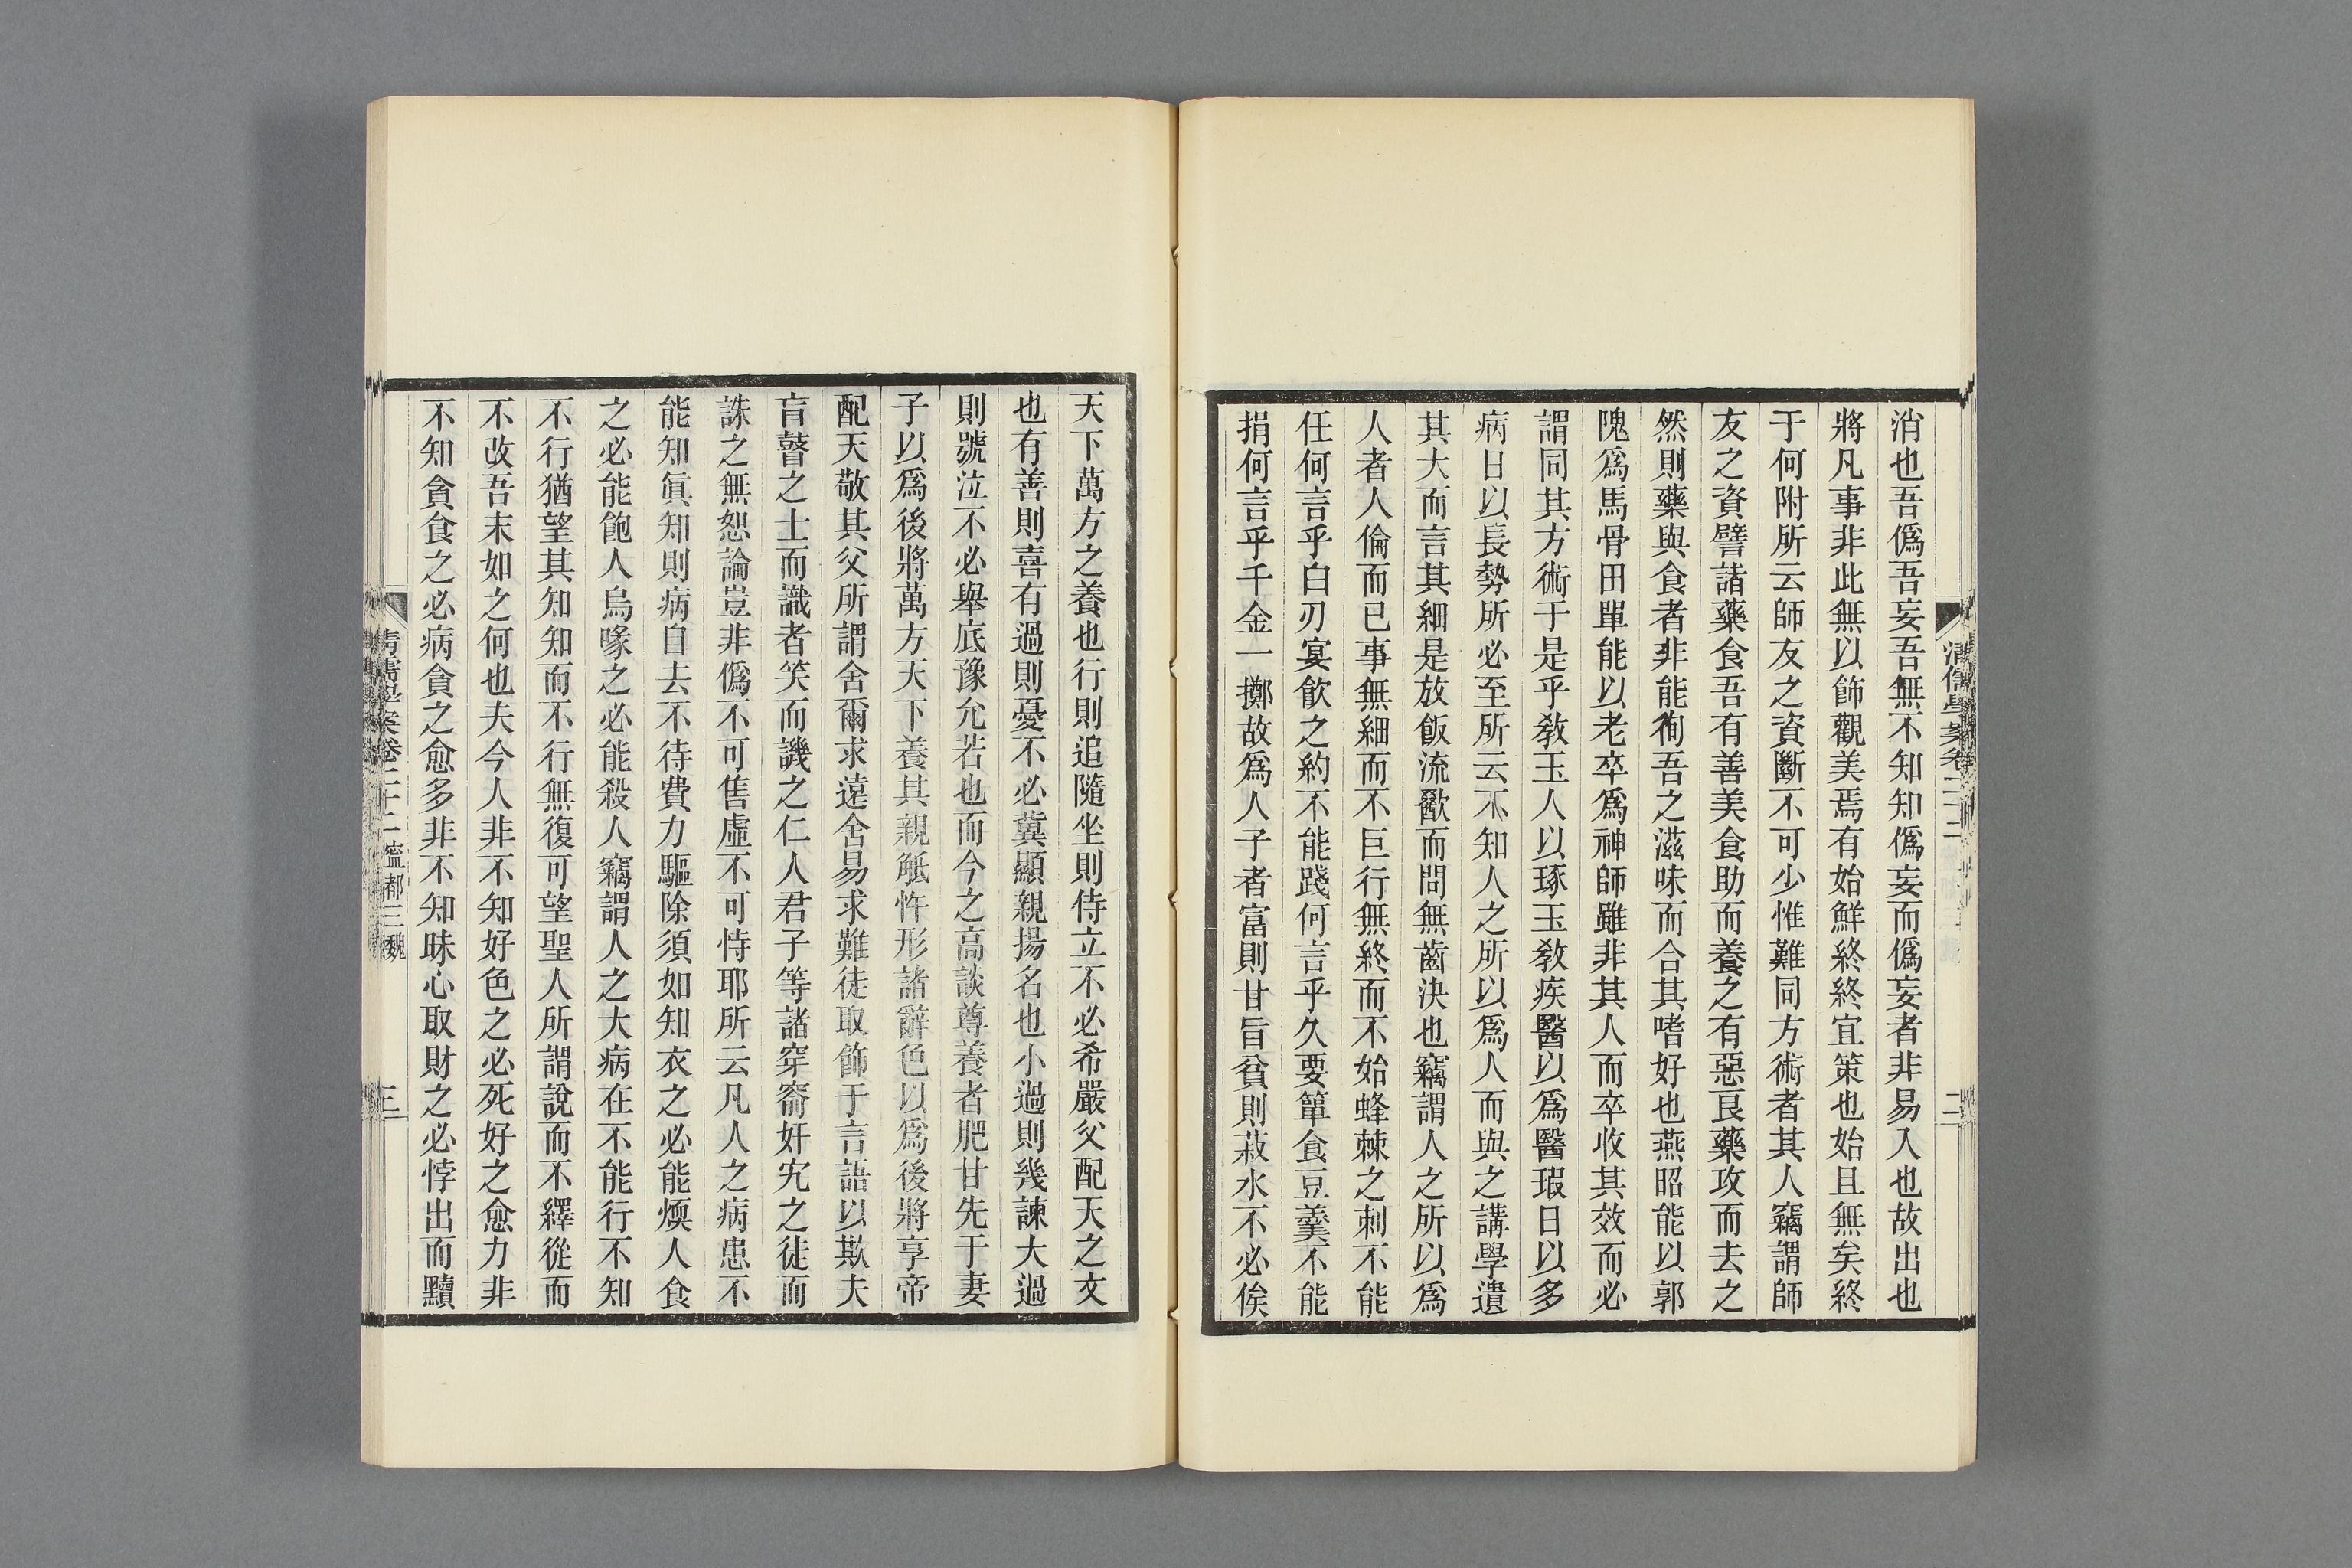 消也吾僞吾妄吾無不知知僞妄而僞妄者非易入也故出也
將凡事非此無以飾觀美焉有始鮮終終宜策也始且無矣終
于何附所云師友之資斷不可少惟難同方術者其人竊謂師
友之資譬諸藥食吾有善美食助而養之有惡良藥攻而去之
然則藥與食者非能徇吾之滋味而合其嗜好也燕昭能以郭
隗爲馬骨田單能以老卒爲神師雖非其人而卒收其效而必
謂同其方術于是乎敎玉人以琢玉敎疾醫以爲醫瑕日以多
病日以長勢所必至所云不知人之所以爲人而與之講學遺
其大而言其細是放飯流歠而問無齒決也竊謂人之所以爲
人者人倫而已事無細而不巨行無終而不始蜂棘之刺不能
任何言乎白刃宴飮之約不能踐何言乎久要簞食豆羹不能
捐何言乎千金一擲故爲人子者富則甘旨貧則菽水不必俟
清儒學案卷二十二
二
天下萬方之養也行則追隨坐則侍立不必希嚴父配天之文
也有善則喜有過則憂不必冀顯親揚名也小過則幾諫大過
則號泣不必舉底豫允若也而今之高談尊養者肥甘先于妻
子以爲後將萬方天下養其親觝忤形諸辭色以爲後將享帝
配天敬其父所謂舍爾求遠舍易求難徒取飾于言語以欺夫
盲瞽之士而識者笑而譏之仁人君子等諸穿窬奸宄之徒而
誅之無恕論豈非僞不可售虛不可恃耶所云凡人之病患不
能知眞知則病自去不待費力驅除須如知衣之必能煥人食
之必能飽人烏喙之必能殺人竊謂人之大病在不能行不知
不行猶望其知知而不行無復可望聖人所謂說而不繹從而
不改吾末如之何也夫今人非不知好色之必死好之愈力非
不知貪食之必病貪之愈多非不知昧心取財之必悖出而黷
清儒學案卷二十二 寧都三魏
三